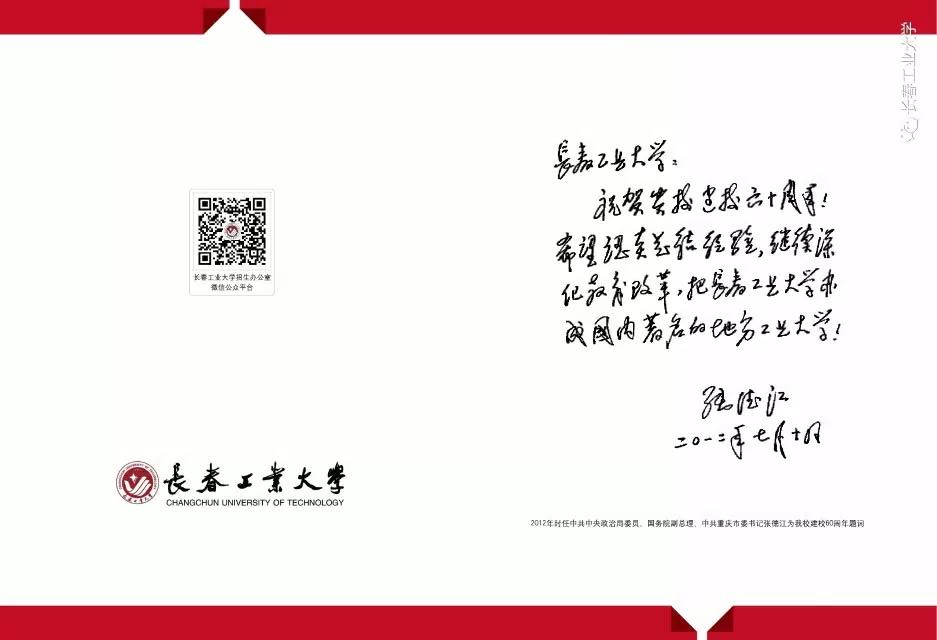 长春工业大学
长春工业大学招生办公室
微信公众平台
長春工業大學
CHANGCHUN UNIVERSITY OF TECHNOLOGY
長春工业大学：
祝贺贵校建校六十周年！
希望认真总结经验，继续深
化教育改革，把長春工业大学办
成國内著名的地方工业大学！
张德江
二〇一二年七月十日
2012年时任中共中央政治局委员、国务院副总理、中共重庆市委书记张德江为我校建校60周年题词